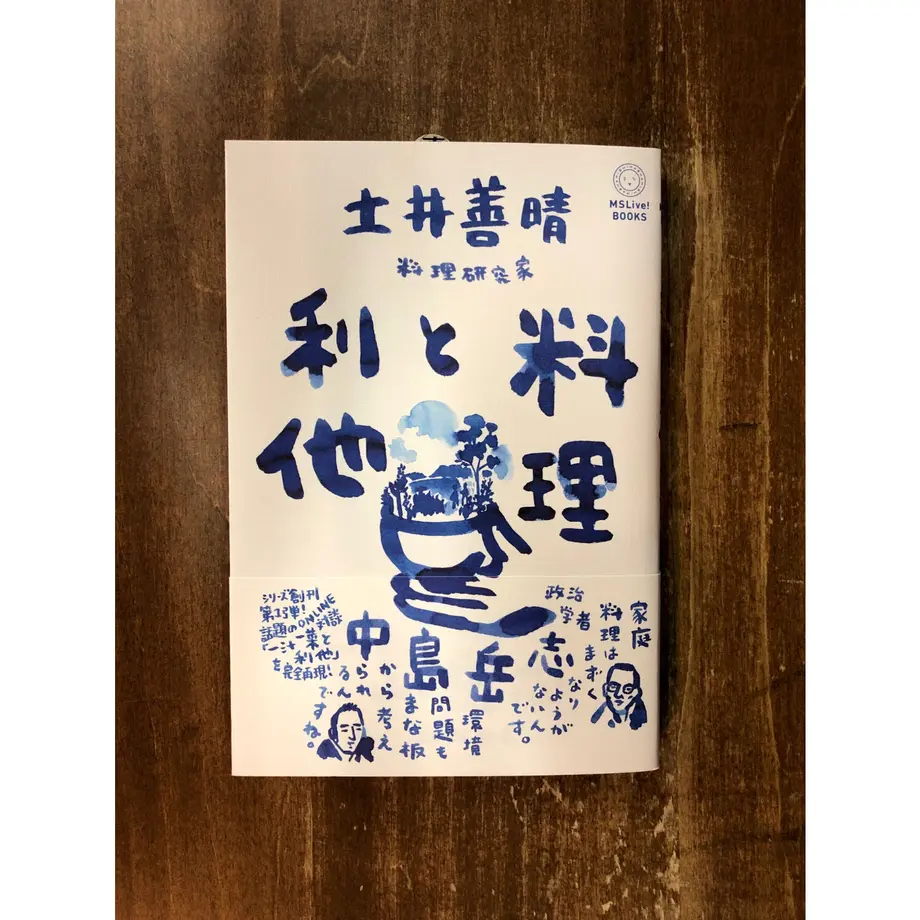 土井善晴
料理研究家
MSLive!
BOOKS
料理
と
利他
政治
学者
中島岳志
家庭
料理は
まずく
なり
ようが
ないん
です。
環境
問題も
まな板
から考え
られ
るん
ですね。
シリーズ創刊
第1弾!
話題のONLINE対談
「一汁一菜と
利他」
を完全再現!